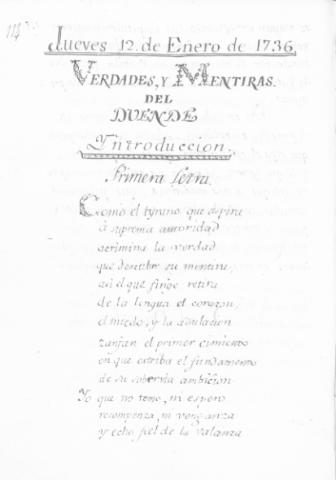 114
Jueves 12. de Enero de 1736
VERDADES, Y MENTIRAS.
DEL
DUENDE
Yntroduccion.
Primera letra.
Como el tyrano que aspira
à suprema autoridad
acrimina la verdad
que descubre su mentira
asi el que finge retira
de la lengua el corazon,
el miedo, y la adulacion
zanjan el primer cimiento
en que estriba el fundamento
de su soberbia ambicion.
Yo que no temo, ni espero
recompenza, ni venganza
y echo fiel de la valanza